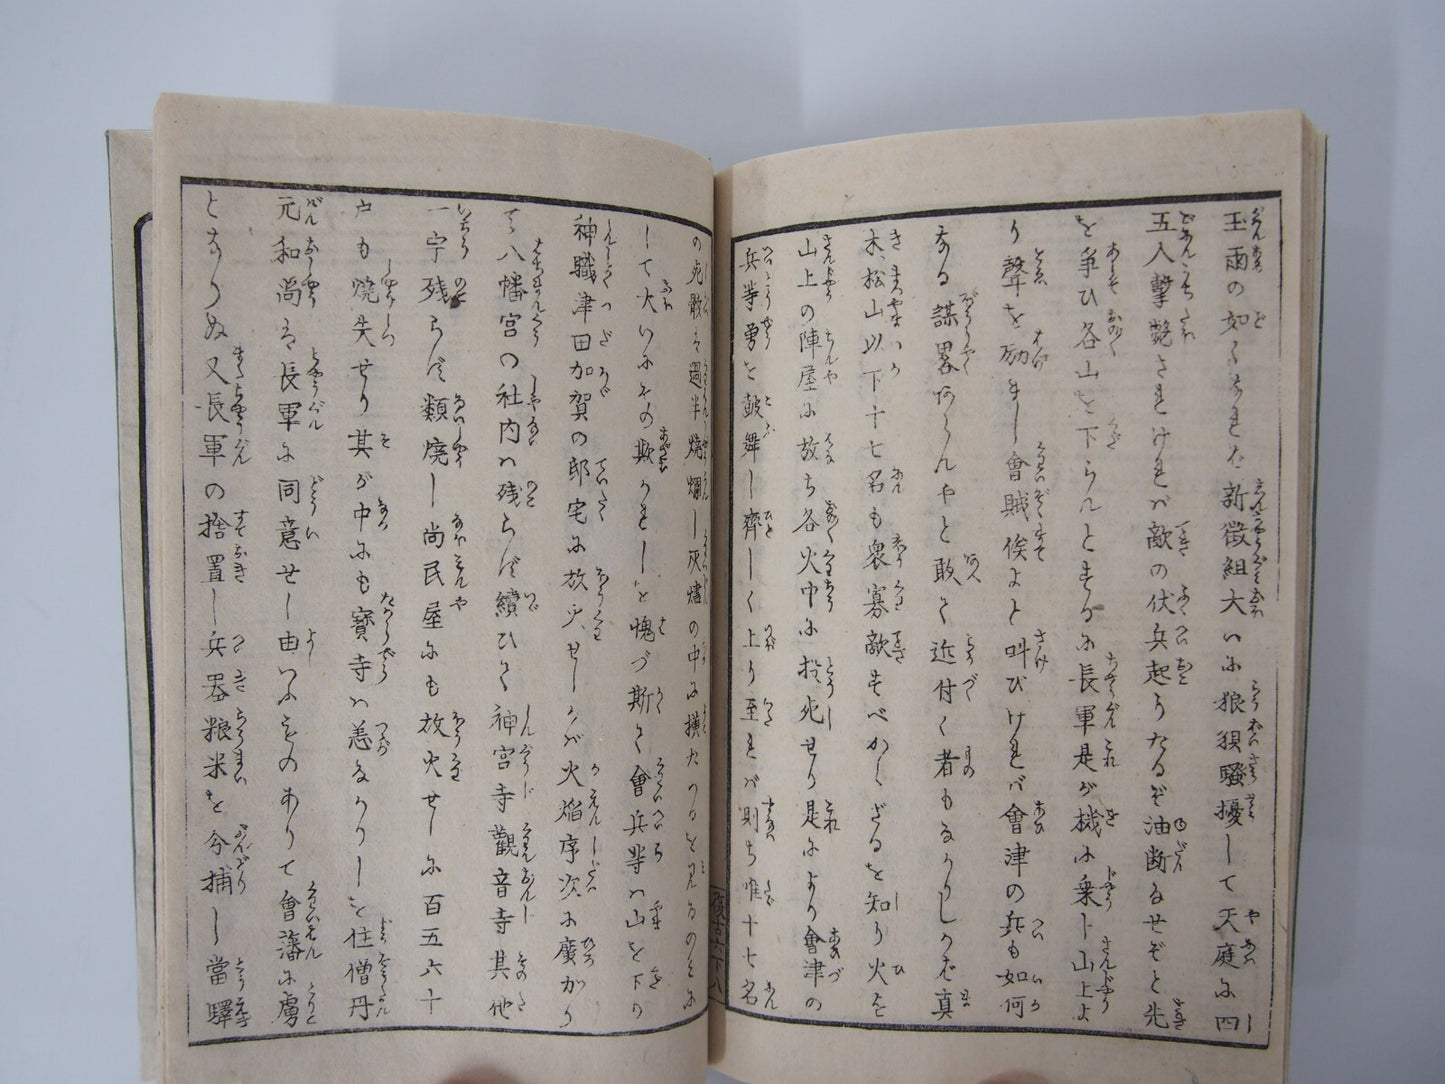 玉雨の如くなれば新徴組大いに狼狽騒擾して天庭に四
五人撃斃されければ敵の伏兵起りたるぞ油断なせぞと先
を争ひ各山を下らんとするに長軍是が機に乗じ山上よ
り聲を励まし會賊俟よと叫びければ會津の兵も如何
なる謀畧あらんやと敢て近付く者もなかりしかば真
木、松山以下十七名も衆寡敵すべからざるを知り火を
山上の陣屋に放ち各火中に投死せり是により會津の
兵等勇を鼓舞し齊しく上り至れば則ち唯十七名
の死骸は過半焼爛し灰燼の中に横たはるを見るのみに
して大いにその欺かれしを愧づ斯て會兵等は山を下り
神職津田加賀の邸宅に放火せしかば火焔序次に廣がり
て八幡宮の社内は残らず續ひて神宮寺觀音寺其他
一宇残らず類焼し尚民屋にも放火せしに百五六十
戸も焼失せり其が中にも寳寺は恙なかりしを住僧丹
元和尚は長軍に同意せし由いふものありて會藩に虜
となりぬ又長軍の捨置し兵器粮米を分捕し當驛
復古六下八